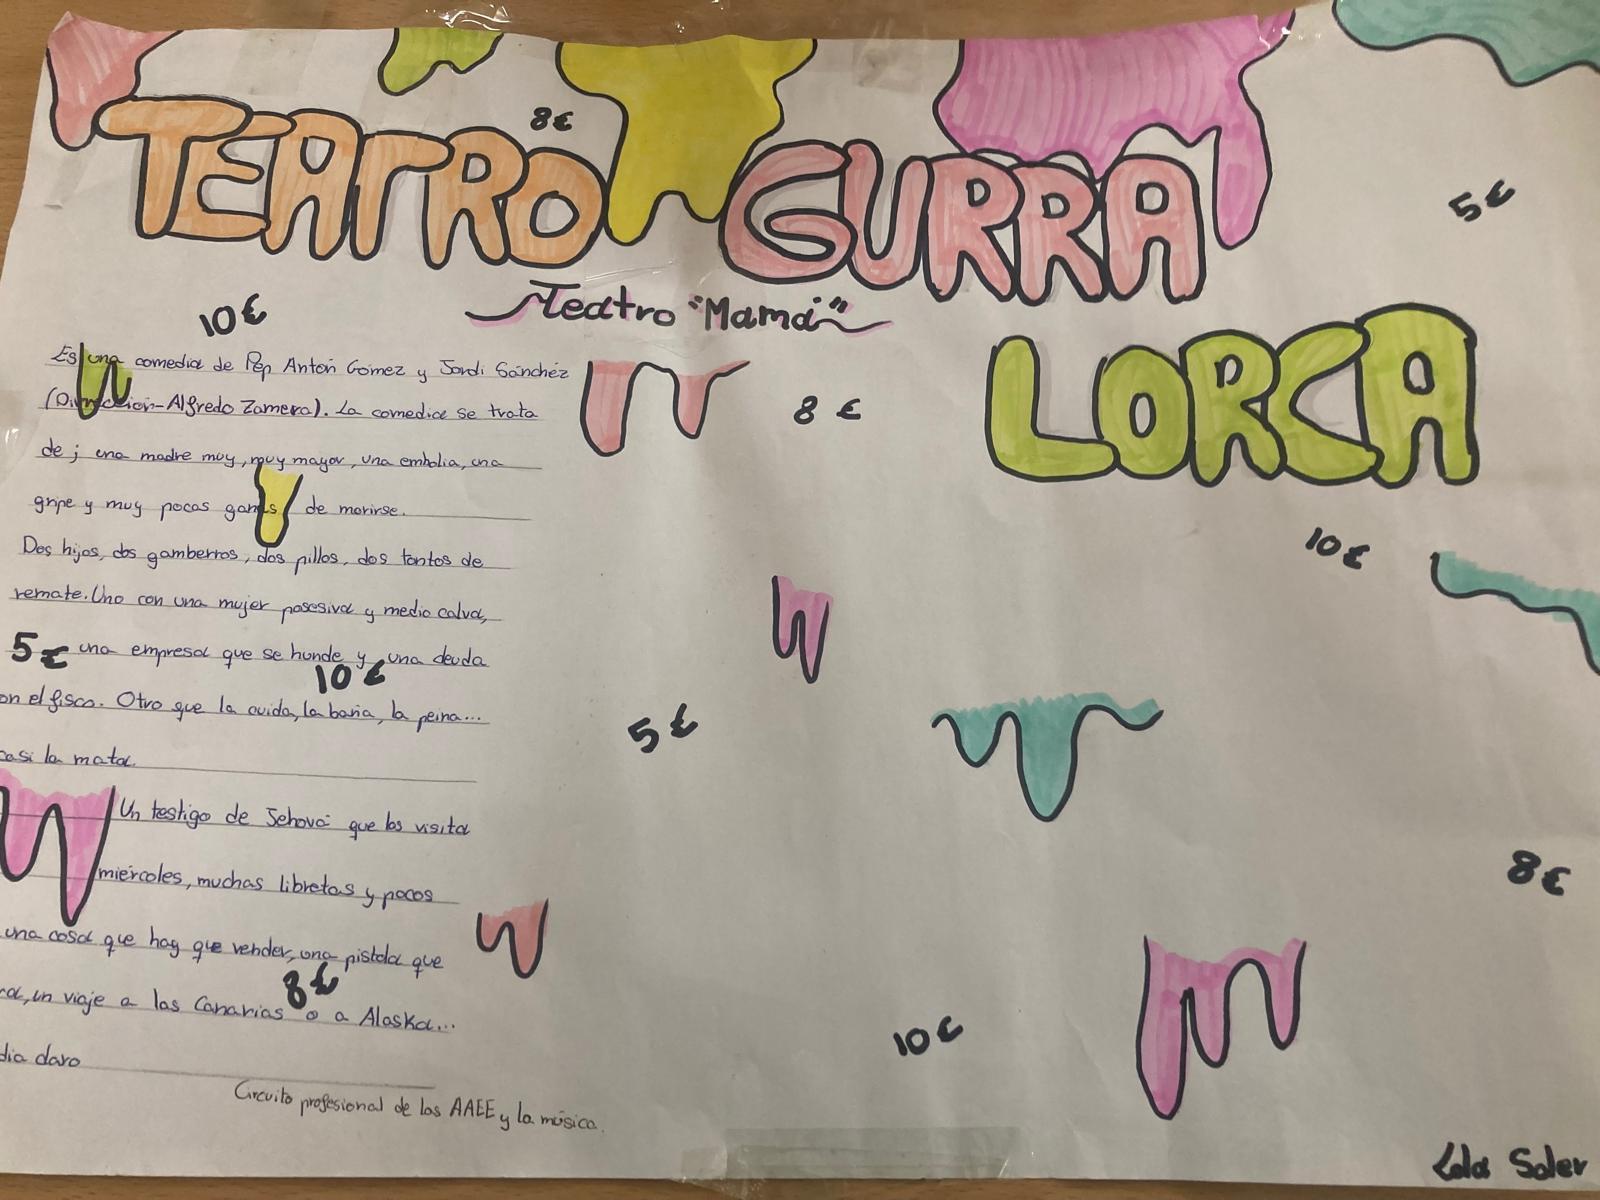 TEATRO GURRA
LORCA
8€
5€
10€
Teatro "Mamá"
Es una comedia de Pep Antón Gómez y Jordi Sánchez
(Dirección-Alfredo Zamora). La comedia se trata
de; una madre muy, muy mayor, una embolia, una
gripe y muy pocas ganas de morirse.
Dos hijos, dos gamberros, dos pillos, dos tontos de
remate. Uno con una mujer posesiva y medio calva,
5€ una empresa que se hunde y una deuda
10€
on el fisco. Otro que la cuida, la baña, la peina...
casi la mata.
Un testigo de Jehová que los visita
miércoles, muchas libretas y pocos
una cosa que hay que vender, una pistola que
8€
un viaje a las Canarias o a Alaska...
dia claro
Circuito profesional de las AAEE y la música.
8€
10€
5€
8€
10€
Lola Soler